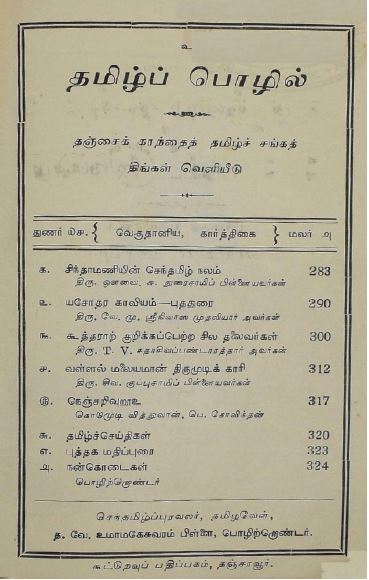 உ
தமிழ்ப் பொழில்
தஞ்சைக் கரந்தைத் தமிழ்ச் சங்கத்
திங்கள் வெளியீடு
துணர் ௰௪. { வெகுதானிய, கார்த்திகை } மலர் ௮
௧. சிந்தாமணியின் செந்தமிழ் நலம் 283
திரு. ஔவை. சு. துரைசாமிப் பிள்ளையவர்கள்
௨. யசோதர காவியம்—புத்துரை 290
திரு. வே. மு. ஸ்ரீநிவாஸ முதலியார் அவர்கள்
௩. கூத்தராற் குறிக்கப்பெற்ற சில தலைவர்கள் 300
திரு. T. V. சதாசிவப்பண்டாரத்தார் அவர்கள்
௪. வள்ளல் மலையமான் திருமுடிக் காரி 312
திரு. சிவ. குப்புசாமிப் பிள்ளையவர்கள்
௫. நெஞ்சறிவுறூஉ 317
கொடுமுடி வித்துவான், பெ. கோவிந்தன்
௬. தமிழ்ச்செய்திகள் 320
௭. புத்தக மதிப்புரை 323
௮. நன்கொடைகள் 324
பொழிற்றொண்டர்
செந்தமிழ்ப்புரவலர், தமிழவேள்,
த. வே. உமாமகேசுவரம் பிள்ளை, பொழிற்றொண்டர்.
கூட்டுறவுப் பதிப்பகம், தஞ்சாவூர்.